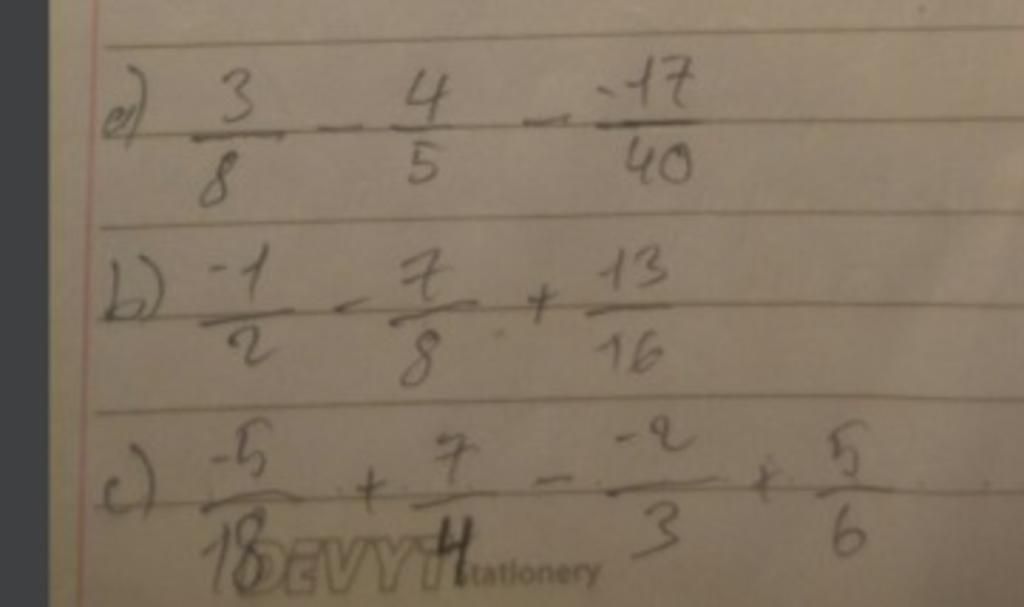 a) 3/8 - 4/5 - -17/40
b) -1/2 - 7/8 + 13/16
c) -5/18 + 7/4 - -2/3 + 5/6
DEVYT stationery